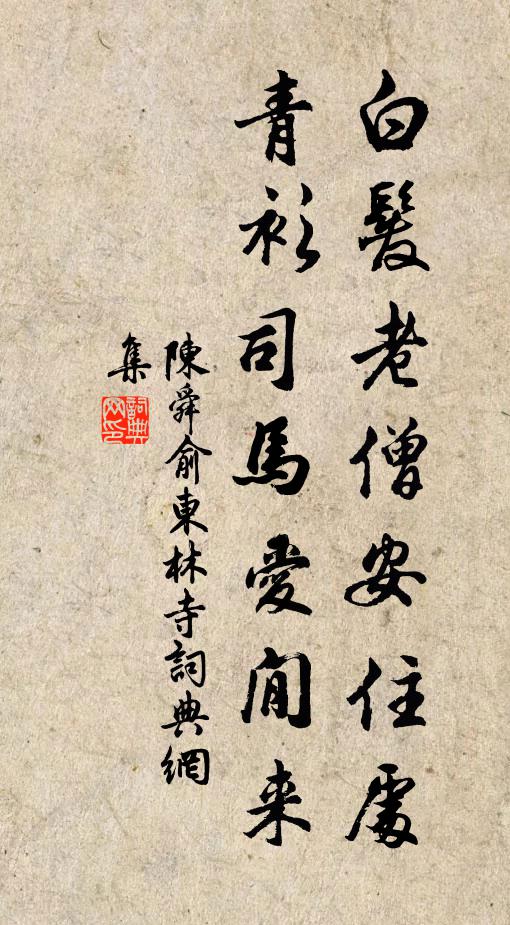 白髮老僧安住處
青衫司馬愛閒来
陳舜俞東林寺詞典網
集
詞典
网印